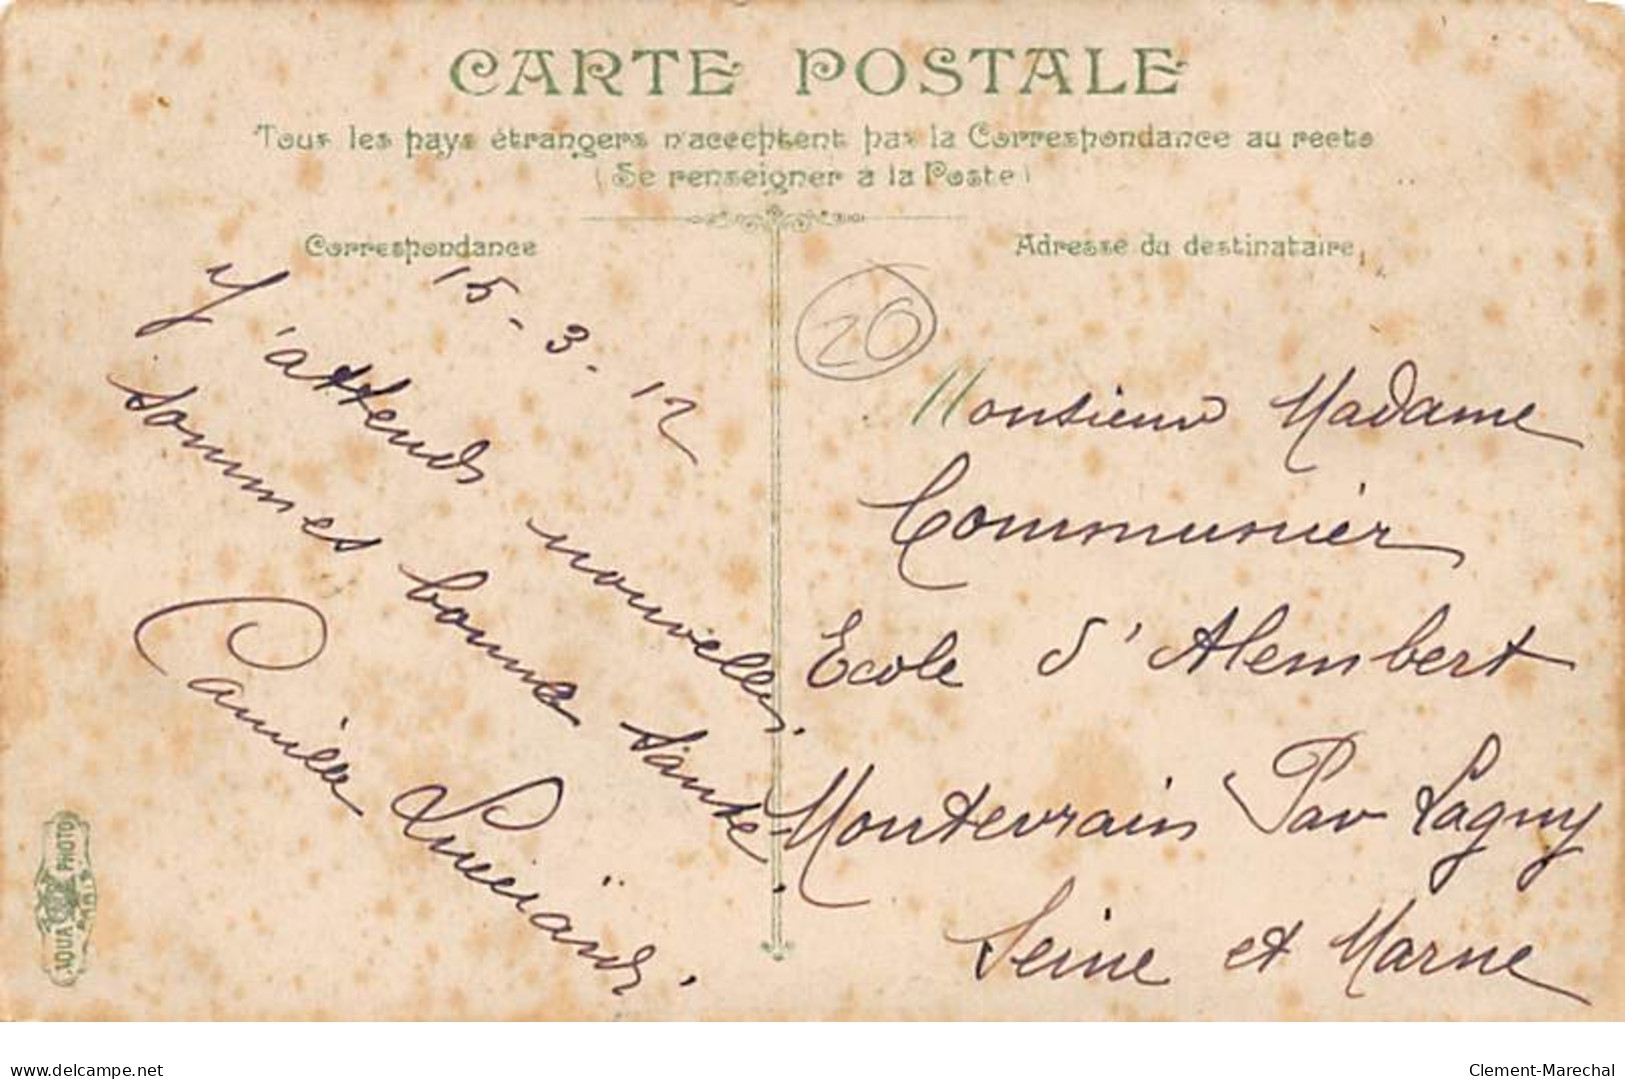 CARTE POSTALE
Tous les pays étrangers n'acceptent pas la Correspondance au recto
(Se renseigner à la Poste)
Correspondance
15-3-12
J'attends nouvelles
sommes bonne santé.
Camille
Adresse du destinataire
20
Monsieur Madame
Communier
Ecole d'Alembert
Montevrain Par Lagny
Seine et Marne
AQUA PHOTO
PARIS
delcampe.net
Clement-Marechal